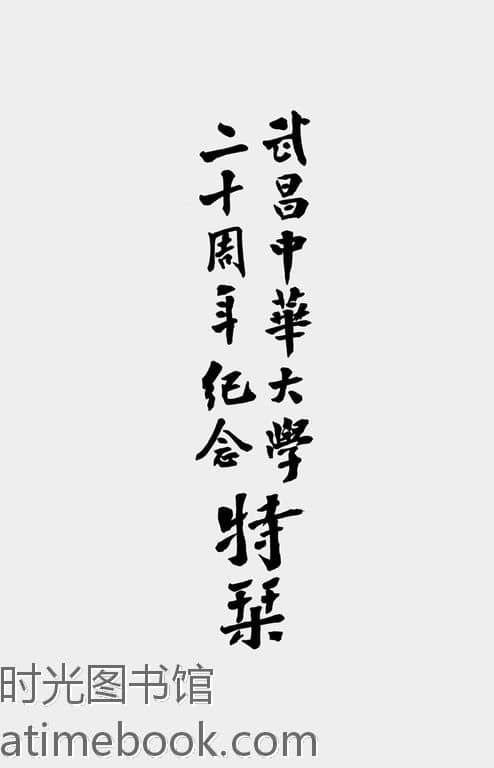 武昌中華大學
二十周年紀念
特栞
时光图书馆
atimebook.com